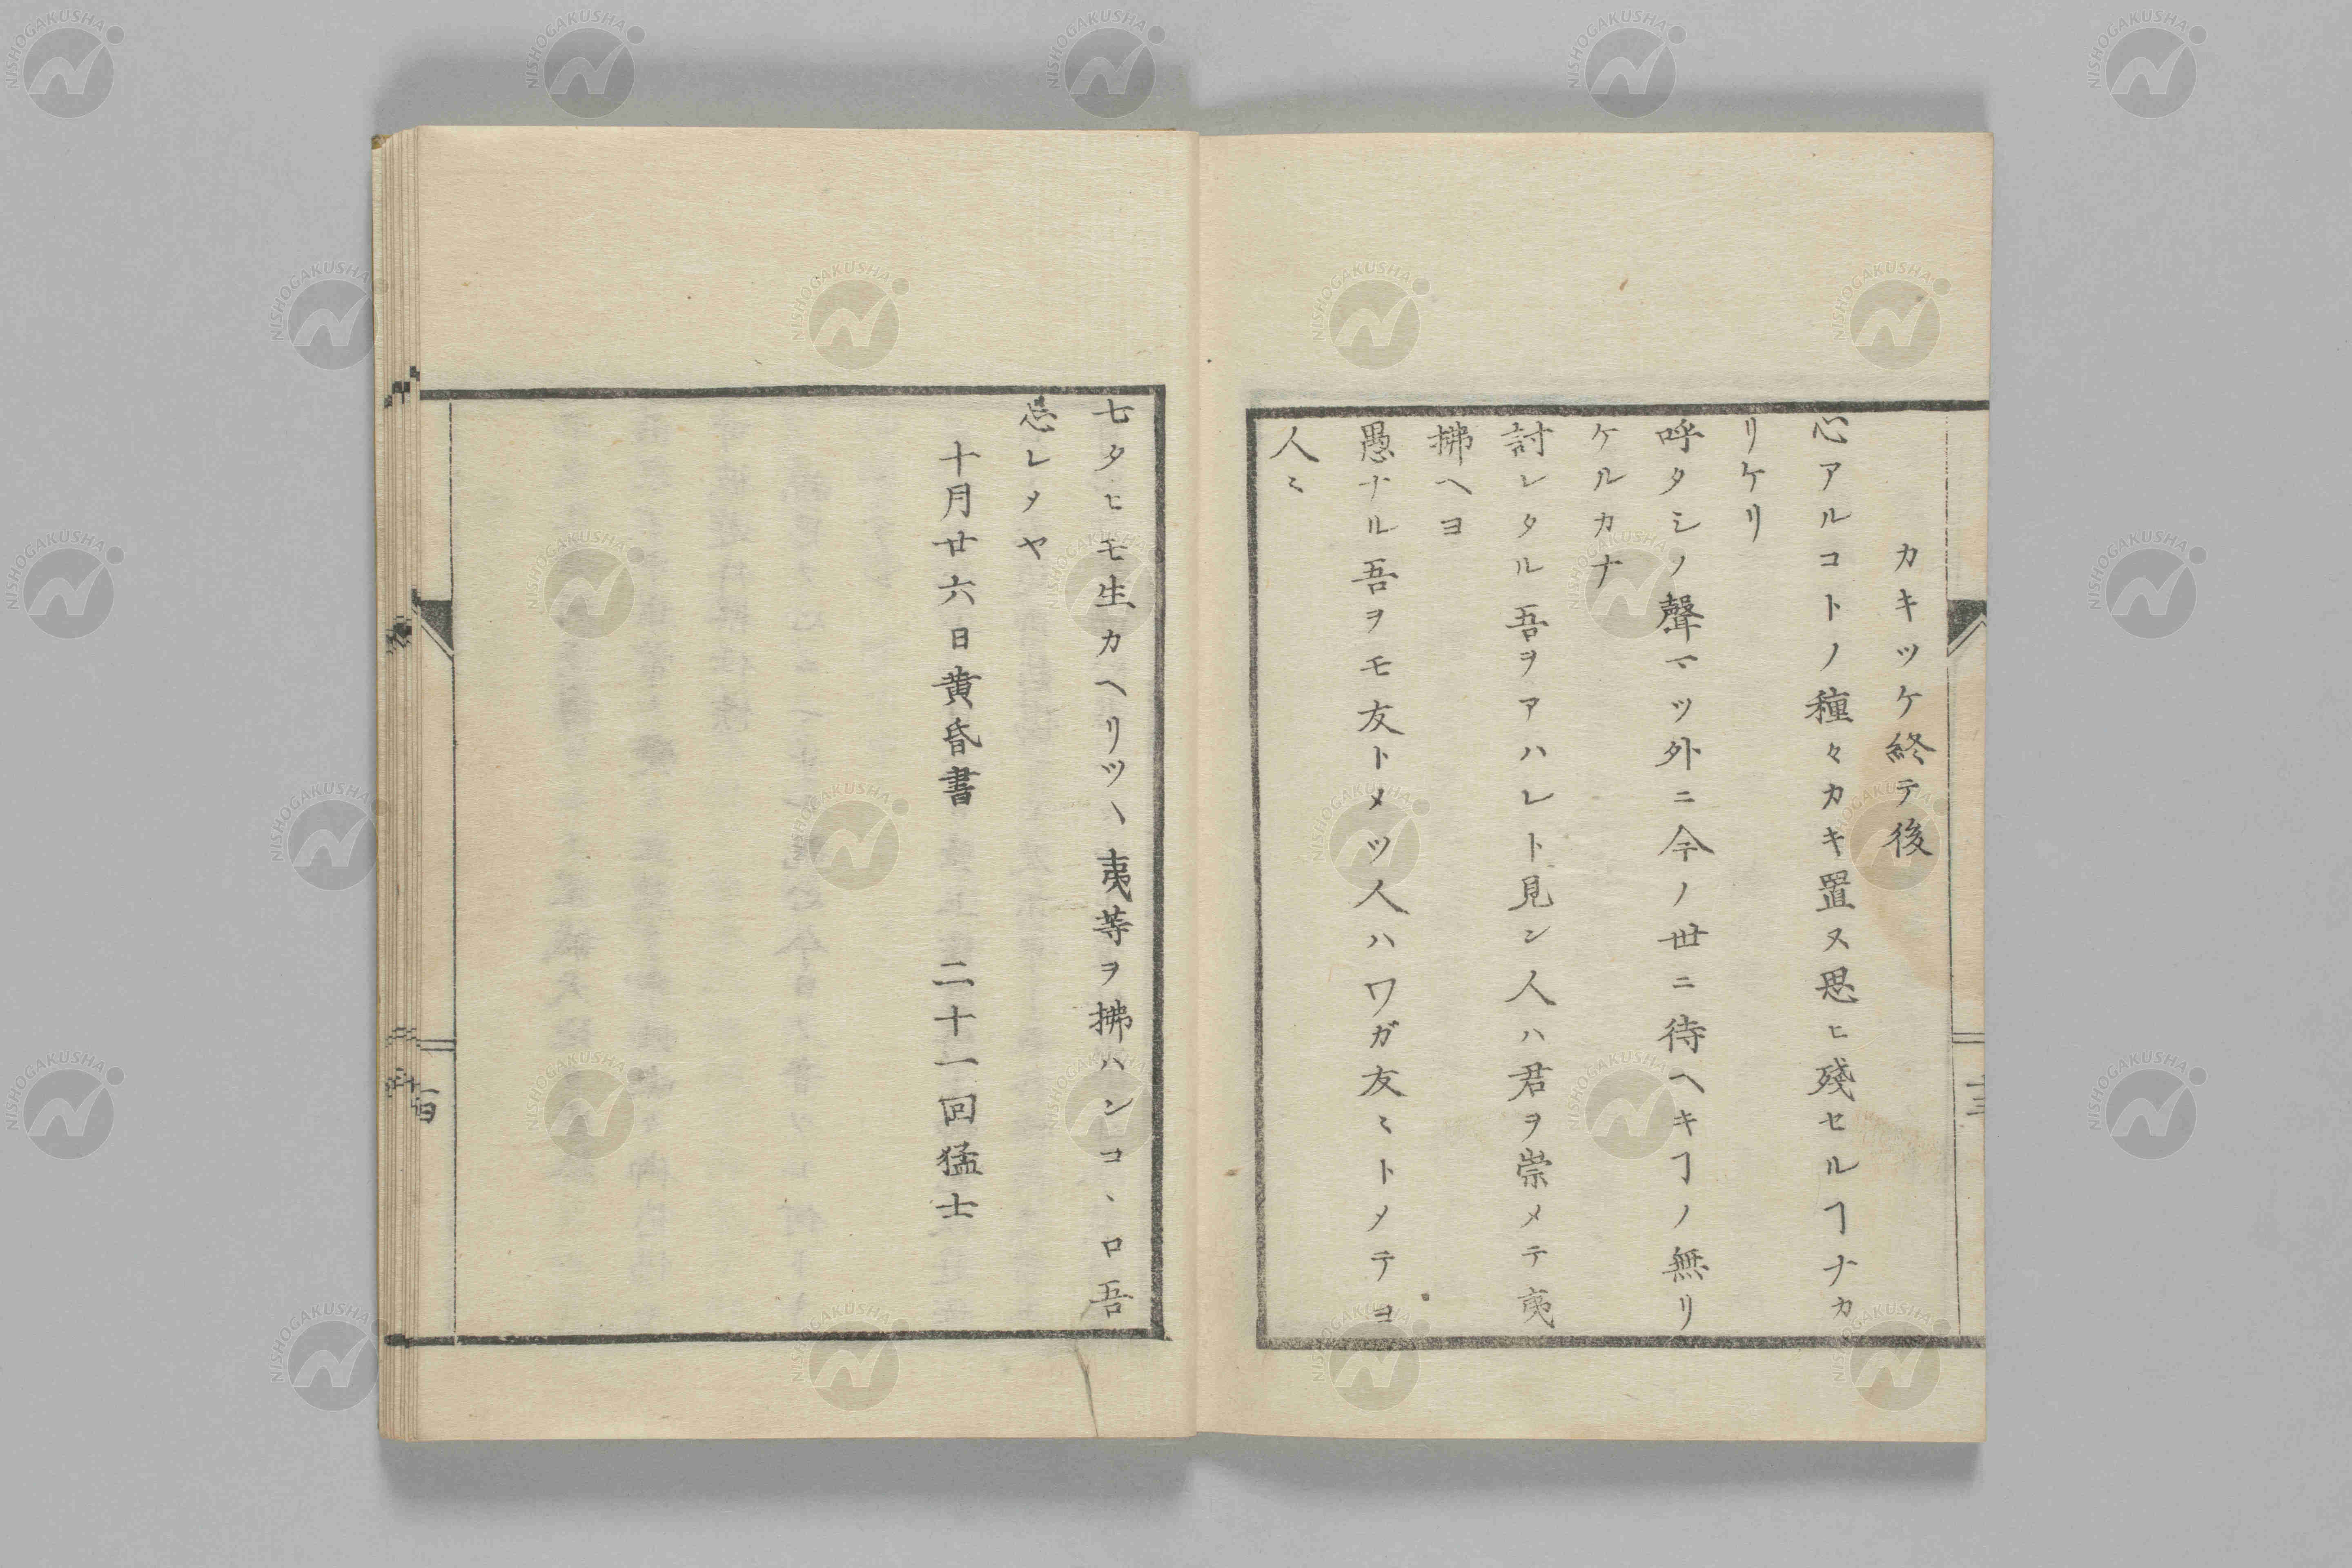 カキツケ終テ後
心アルコトノ種々カキ置ヌ思ヒ殘セルヿナカ
リケリ
呼タシノ聲マツ外ニ今ノ世ニ待ヘキヿノ無リ
ケルカナ
討レタル吾ヲアハレト見ン人ハ君ヲ崇メテ夷
拂ヘヨ
愚ナル吾ヲモ友トメツ人ハワガ友ミトメテヨ
人ミ
七タヒモ生カヘリツヽ夷等ヲ拂ハンコヽロ吾
忘レメヤ
十月廿六日黄昏書 二十一回猛士
NISHOGAKUSHA